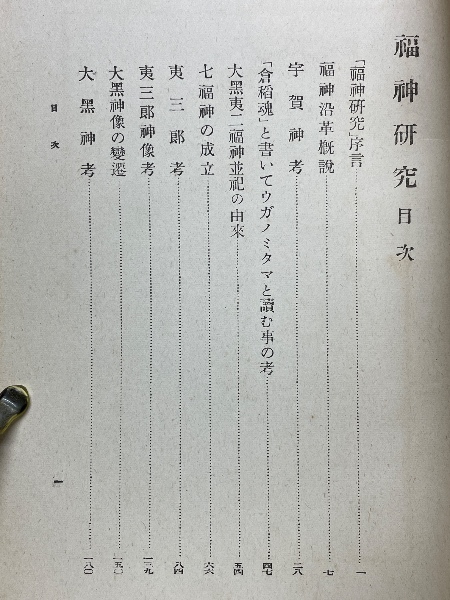 福神研究目次
「福神研究」序言……一
福神沿革概說……七
宇賀神考……二八
「倉稻魂」と書いてウガノミタマと讀む事の考……四七
大黑夷二福神並祀の由來……五四
七福神の成立……六六
夷三郎考……八四
夷三郎神像考……一三九
大黑神像の變遷……一五〇
大黑神考……一八〇
目次
一